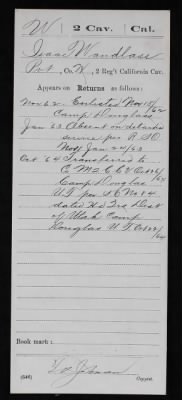 W | 2 Cav. | Cal.
Isaac Wandlass
Pvt., Co. K, 2 Reg't California Cav.
Appears on Returns as follows:
Nov 62. Enlisted Nov 18/62
Camp Douglass
Jan 63 Absent on detached
service per R.S.O.
No 11 Jan 24/63
Oct 64 Transferred to
Co M 2 C C V Oct 26/64
Camp Douglas
U T per S O No 84
dated Hd Qrs Dist
of Utah Camp
Douglas U T Oct 22/64
Book mark:
(546)
Copyist.